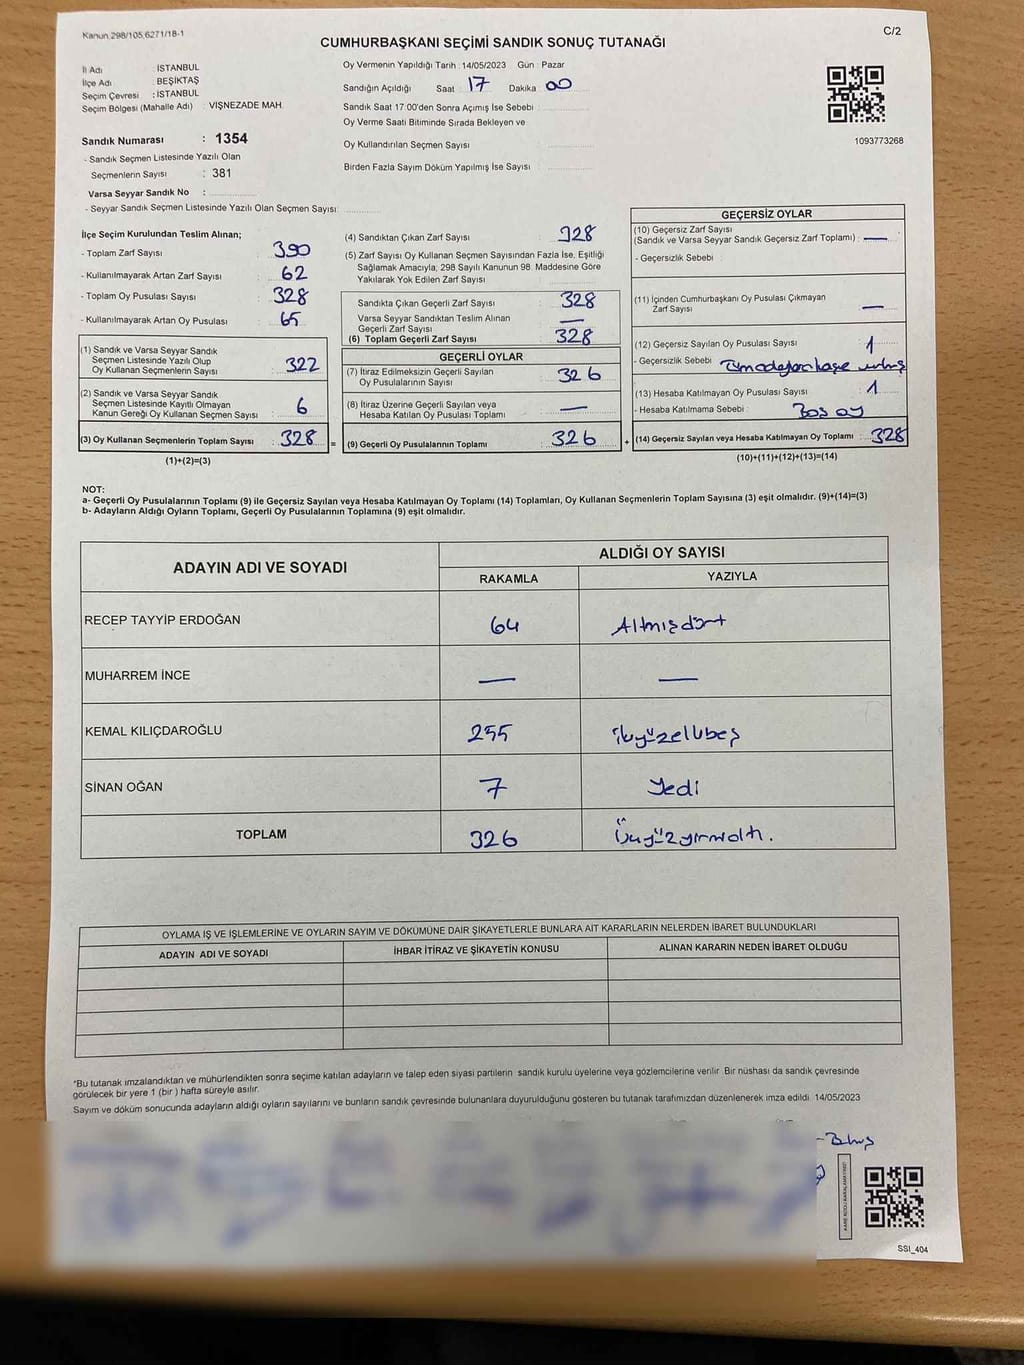 Kanun 298/105,6271/18-1
C/2
CUMHURBAŞKANI SEÇİMİ SANDIK SONUÇ TUTANAĞI
İl Adı : İSTANBUL
İlçe Adı : BEŞİKTAŞ
Seçim Çevresi : İSTANBUL
Seçim Bölgesi (Mahalle Adı) : VİŞNEZADE MAH.
Sandık Numarası : 1354
- Sandık Seçmen Listesinde Yazılı Olan
Seçmenlerin Sayısı : 381
Varsa Seyyar Sandık No :
- Seyyar Sandık Seçmen Listesinde Yazılı Olan Seçmen Sayısı:
Oy Vermenin Yapıldığı Tarih :14/05/2023 Gün : Pazar
Sandığın Açıldığı Saat : 17 Dakika : 00
Sandık Saat 17:00'den Sonra Açımış İse Sebebi :
Oy Verme Saati Bitiminde Sırada Bekleyen ve
Oy Kullandırılan Seçmen Sayısı :
Birden Fazla Sayım Döküm Yapılmış İse Sayısı :
1093773268
İlçe Seçim Kurulundan Teslim Alınan;
- Toplam Zarf Sayısı : 390
- Kullanılmayarak Artan Zarf Sayısı : 62
- Toplam Oy Pusulası Sayısı : 328
- Kullanılmayarak Artan Oy Pusulası : 65
(1) Sandık ve Varsa Seyyar Sandık
Seçmen Listesinde Yazılı Olup
Oy Kullanan Seçmenlerin Sayısı : 322
(2) Sandık ve Varsa Seyyar Sandık
Seçmen Listesinde Kayıtlı Olmayan
Kanun Gereği Oy Kullanan Seçmen Sayısı : 6
(3) Oy Kullanan Seçmenlerin Toplam Sayısı : 328 =
(1)+(2)=(3)
(4) Sandıktan Çıkan Zarf Sayısı : 328
(5) Zarf Sayısı Oy Kullanan Seçmen Sayısından Fazla İse, Eşitliği
Sağlamak Amacıyla; 298 Sayılı Kanunun 98. Maddesine Göre
Yakılarak Yok Edilen Zarf Sayısı :
Sandıkta Çıkan Geçerli Zarf Sayısı : 328
Varsa Seyyar Sandıktan Teslim Alınan
Geçerli Zarf Sayısı : —
(6) Toplam Geçerli Zarf Sayısı : 328
GEÇERLİ OYLAR
(7) İtiraz Edilmeksizin Geçerli Sayılan
Oy Pusulalarının Sayısı : 326
(8) İtiraz Üzerine Geçerli Sayılan veya
Hesaba Katılan Oy Pusulası Toplamı : —
(9) Geçerli Oy Pusulalarının Toplamı : 326 +
GEÇERSİZ OYLAR
(10) Geçersiz Zarf Sayısı
(Sandık ve Varsa Seyyar Sandık Geçersiz Zarf Toplamı) : —
- Geçersizlik Sebebi :
(11) İçinden Cumhurbaşkanı Oy Pusulası Çıkmayan
Zarf Sayısı : —
(12) Geçersiz Sayılan Oy Pusulası Sayısı : 1
- Geçersizlik Sebebi :
(13) Hesaba Katılmayan Oy Pusulası Sayısı : 1
- Hesaba Katılmama Sebebi : Boş oy
(14) Geçersiz Sayılan veya Hesaba Katılmayan Oy Toplamı : 328
(10)+(11)+(12)+(13)=(14)
NOT:
a- Geçerli Oy Pusulalarının Toplamı (9) ile Geçersiz Sayılan veya Hesaba Katılmayan Oy Toplamı (14) Toplamları, Oy Kullanan Seçmenlerin Toplam Sayısına (3) eşit olmalıdır. (9)+(14)=(3)
b- Adayların Aldığı Oyların Toplamı, Geçerli Oy Pusulalarının Toplamına (9) eşit olmalıdır.
ADAYIN ADI VE SOYADI ALDIĞI OY SAYISI
RAKAMLA YAZIYLA
RECEP TAYYİP ERDOĞAN 64 Altmışdört
MUHARREM İNCE — —
KEMAL KILIÇDAROĞLU 255 ikiyüzellibeş
SİNAN OĞAN 7 Yedi
TOPLAM 326 Üçyüzyirmialtı.
OYLAMA İŞ VE İŞLEMLERİNE VE OYLARIN SAYIM VE DÖKÜMÜNE DAİR ŞİKAYETLERLE BUNLARA AİT KARARLARIN NELERDEN İBARET BULUNDUKLARI
ADAYIN ADI VE SOYADI İHBAR İTİRAZ VE ŞİKAYETİN KONUSU ALINAN KARARIN NEDEN İBARET OLDUĞU
*Bu tutanak imzalandıktan ve mühürlendikten sonra seçime katılan adayların ve talep eden siyasi partilerin sandık kurulu üyelerine veya gözlemcilerine verilir. Bir nüshası da sandık çevresinde
görülecek bir yere 1 (bir ) hafta süreyle asılır.
Sayım ve döküm sonucunda adayların aldığı oyların sayılarını ve bunların sandık çevresinde bulunanlara duyurulduğunu gösteren bu tutanak tarafımızdan düzenlenerek imza edildi. 14/05/2023
SSI_404